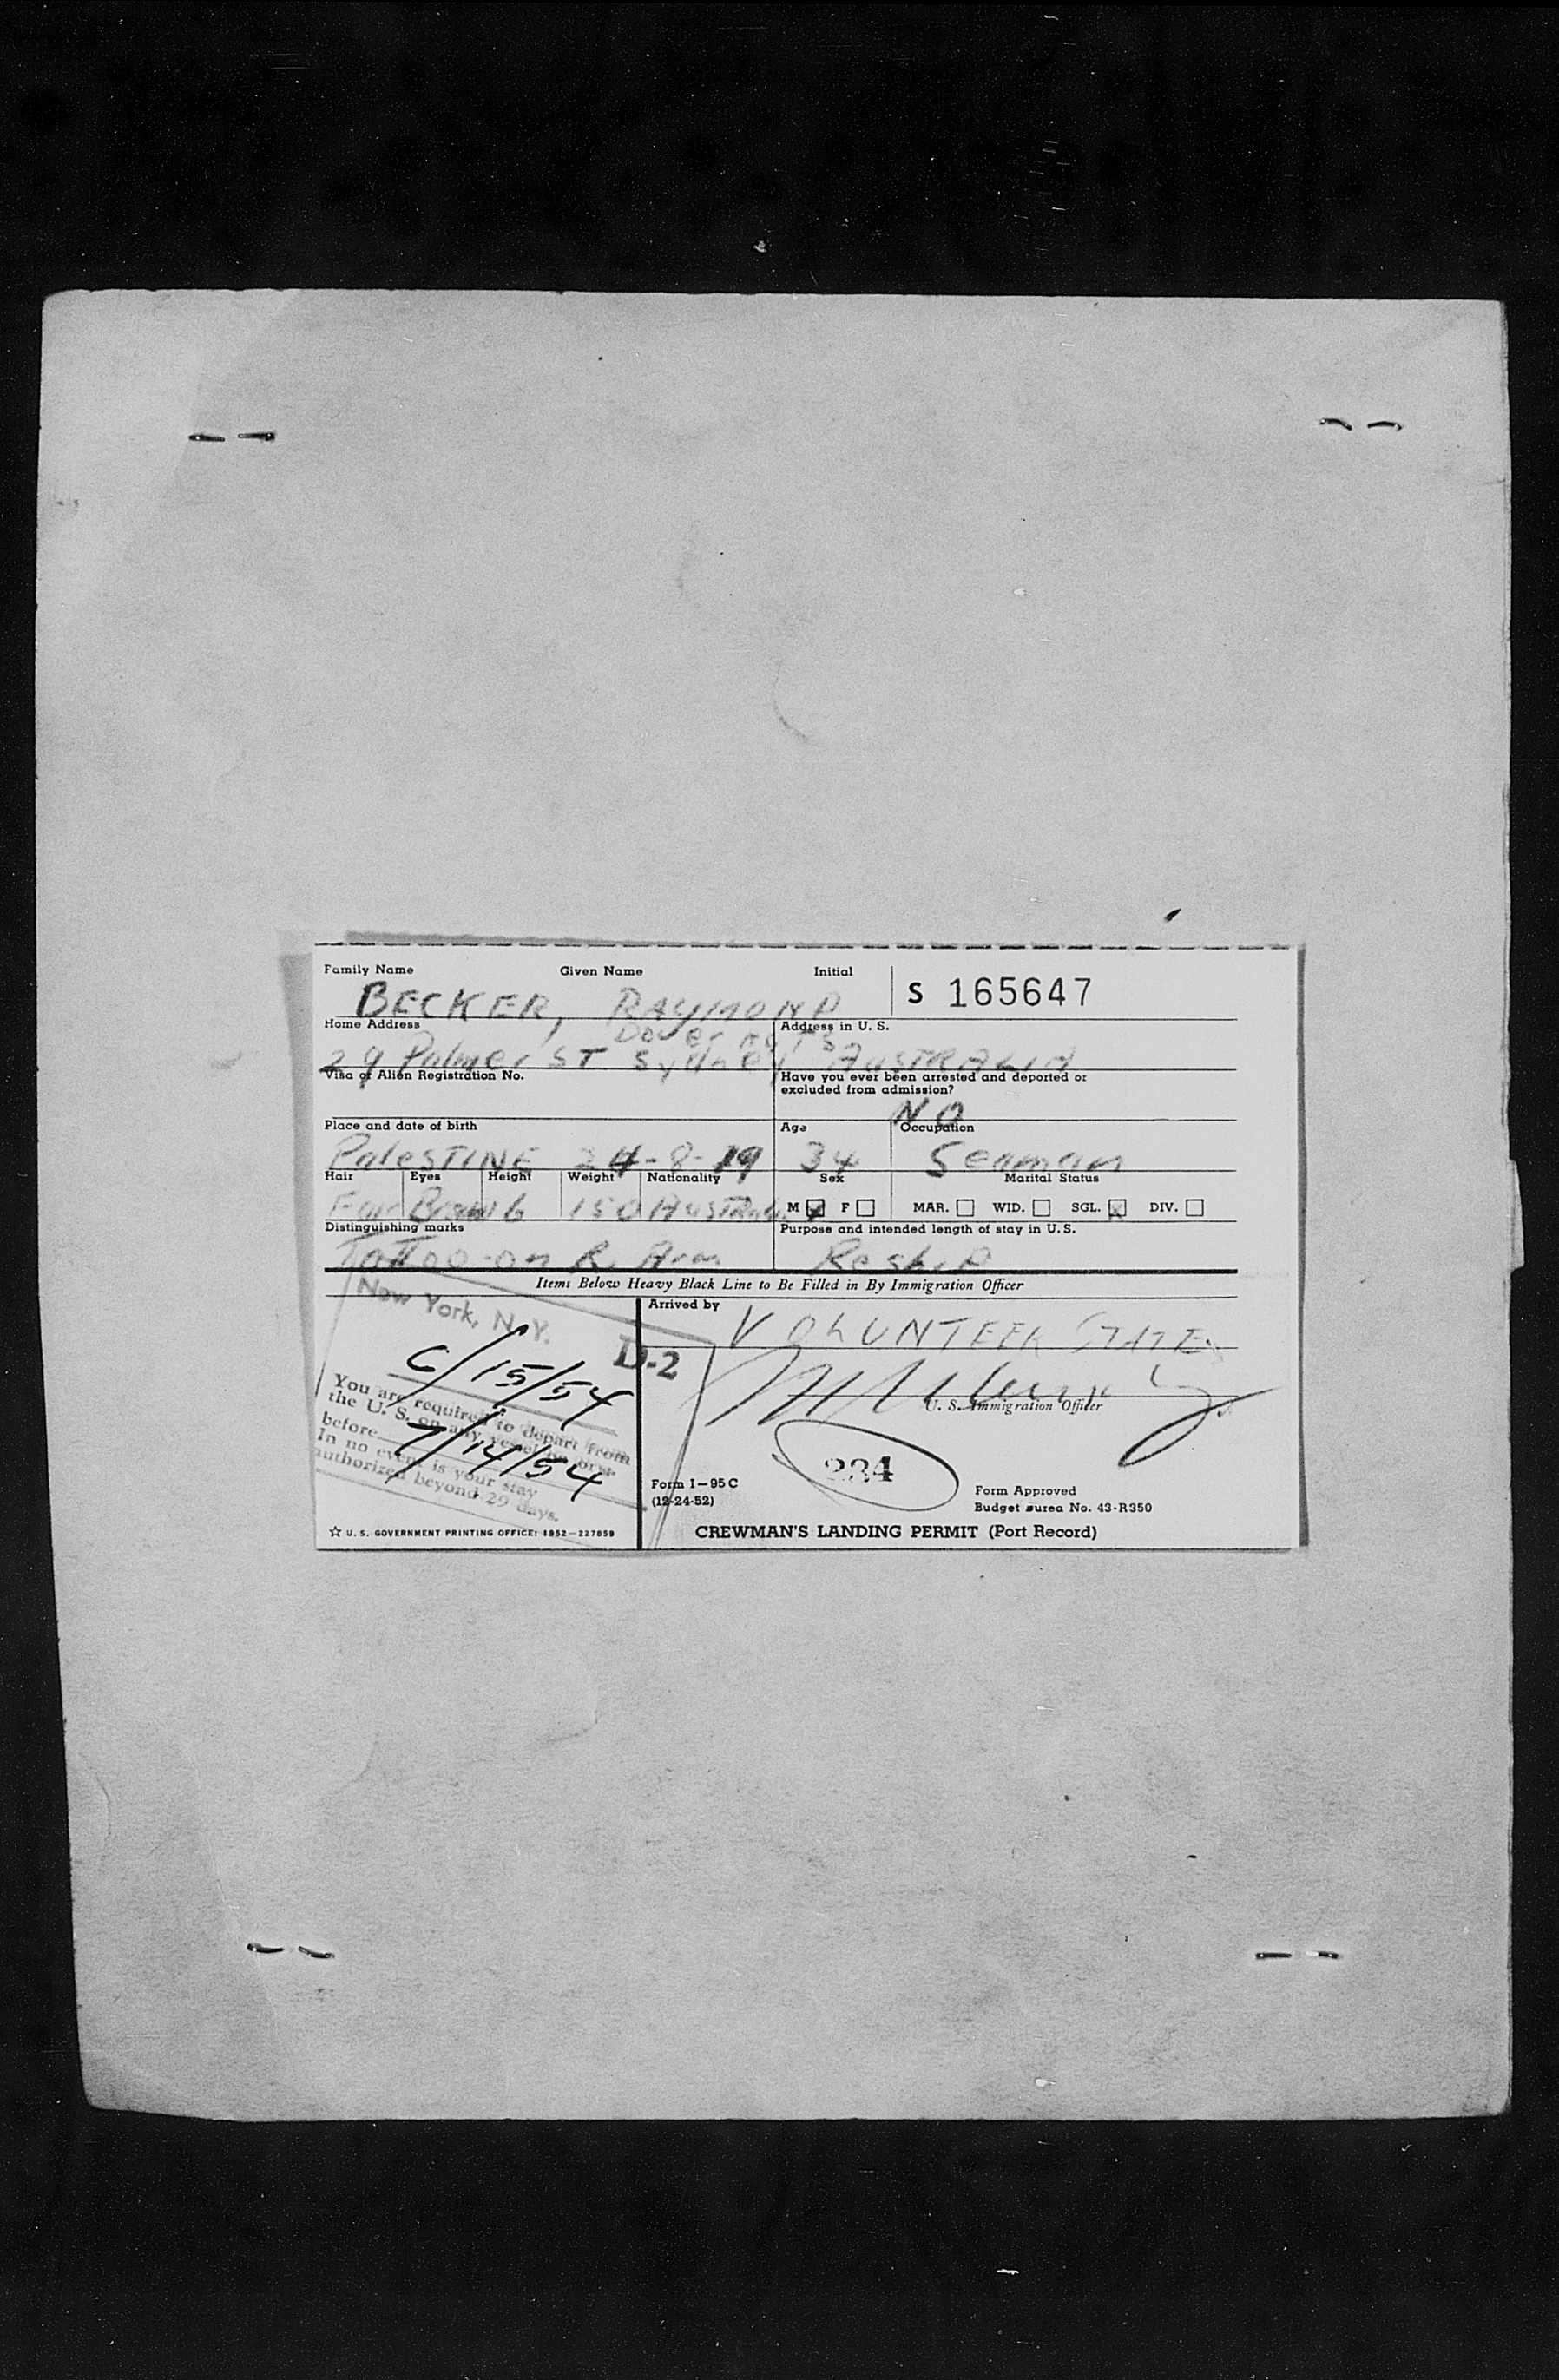 Family Name Given Name Initial
S 165647
BECKER, RAYMOND
Home Address Address in U. S.
Dover
29 Palmer ST Sydney AUSTRALIA
Visa or Alien Registration No. Have you ever been arrested and deported or
excluded from admission?
NO
Place and date of birth Age Occupation
PaleSTINE 24-8-19 34 Seaman
Hair Eyes Height Weight Nationality Sex Marital Status
Fair Brown 6 150 M F MAR. WID. SGL. DIV.
Distinguishing marks Purpose and intended length of stay in U.S.
Tattoo on R. Arm Reship
Items Below Heavy Black Line to Be Filled in By Immigration Officer
New York, N.Y.
Arrived by VOLUNTEER STATE
6/15/54
D-2
You are required to depart from
the U. S. on any vessel on or
before 7/14/54
In no event is your stay
authorized beyond 29 days.
U. S. Immigration Officer
234
Form I-95C
(12-24-52)
Form Approved
Budget Burea No. 43-R350
☆ U. S. GOVERNMENT PRINTING OFFICE: 1952-227859
CREWMAN'S LANDING PERMIT (Port Record)